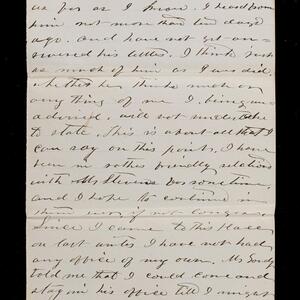 as far as I know. I heard from
him not more than ten days
ago. And have not yet an-
swered his letter. I think just
as much of him as I ever did,
whether he thinks much or
any thing of me I, being un-
advised, will not undertake
to state. This is about all that I
can say on this point. I have
been in rather friendly relations
with Mr Stevens for some time,
and I hope to continue in
them even if not
Since I came to this place
on last I have not had
any office of my own. Mr
told me that I could come and
stay in his office till I might